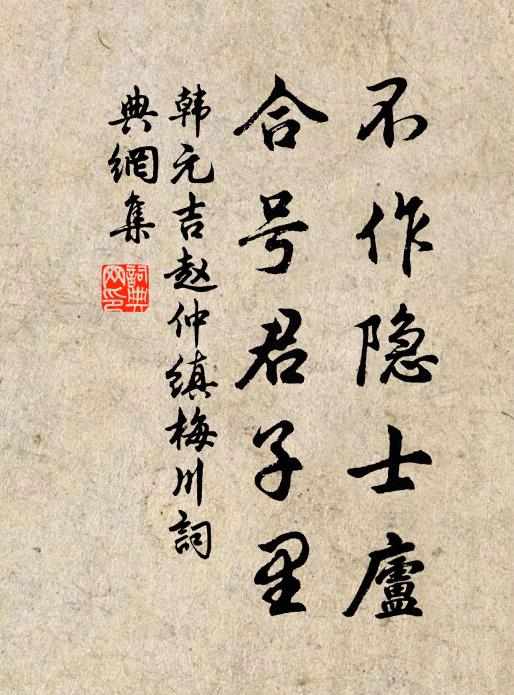 不作隐士廬
合号君子里
韩元吉赵仲缜梅川詞
典網集
詞典網印